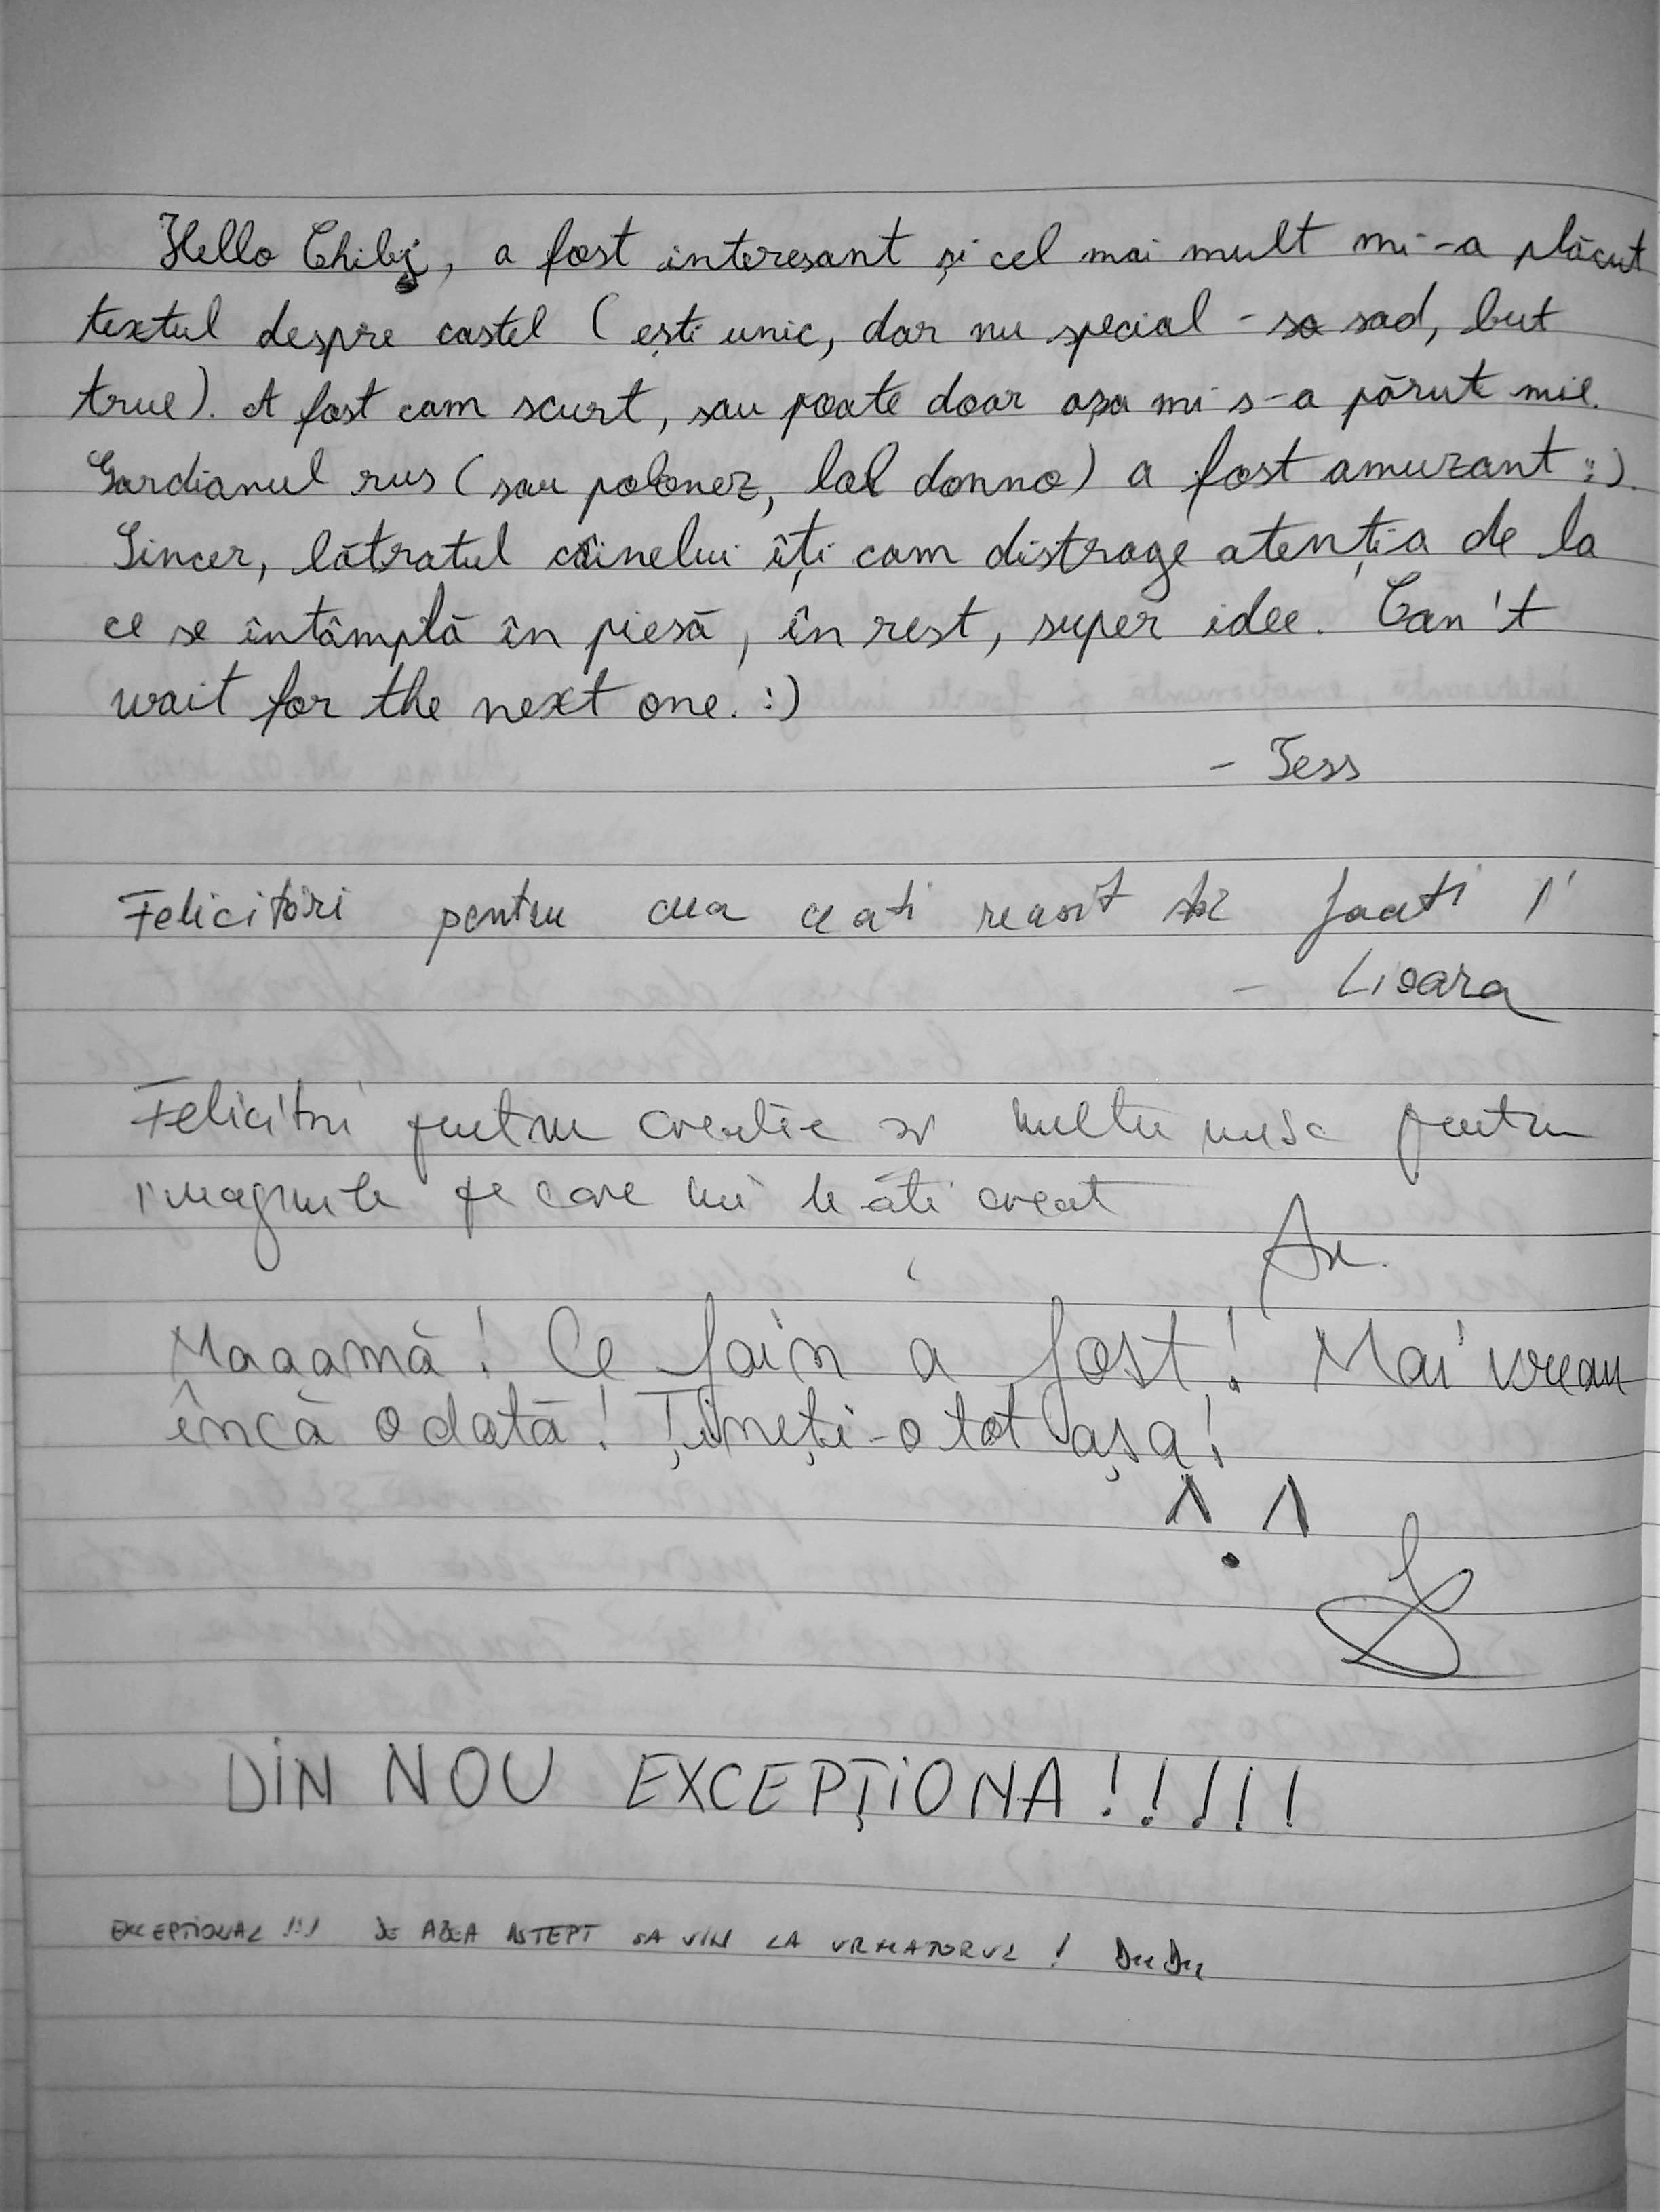 Hello Chibi, a fost interesant și cel mai mult mi-a plăcut
textul despre castel (ești unic, dar nu special - so sad, but
true). A fost cam scurt, sau poate doar așa mi s-a părut mie.
Gardianul rus (sau polonez, lol donno) a fost amuzant :).
Sincer, lătratul câinelui îți cam distrage atenția de la
ce se întâmplă în piesă, în rest, super idee. Can't
wait for the next one. :)
- Tess
Felicitări pentru cea ce ati reusit sa faceti !
- Lioara
Felicitri pentru creatie si multumesc pentru
imaginile pe care mi le ati creat
Maaamă! Ce fain a fost! Mai vreau
încă odată! Țineți-o tot așa!
^.^
DIN NOU EXCEPȚIONA!!!!!
EXCEPTIONAL !!! DE ABEA ASTEPT SA VIN LA URMATORUL ! DuDu